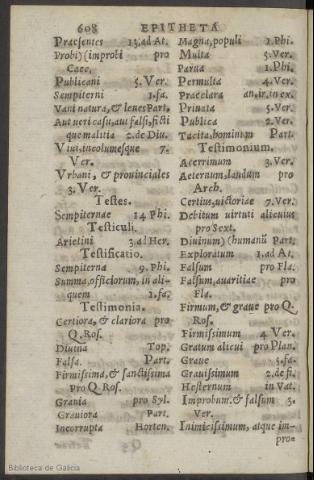 608 EPITHETA
Praesentes 13.ad At.
Probi)(improbi pro
Caec.
Publicani 5.Ver.
Sempiterni 1.fa.
Vani natura, & leues Part.
Aut ueri casu, aut falsi, ficti
que malitia 2.de Diu.
Viui, incolumesque 7.
Ver.
Vrbani, & prouinciales
3.Ver.
Testes.
Sempiternae 14 Phi.
Testiculi.
Arietini 3.ad Her.
Testificatio.
Sempiterna 9.Phi.
Summa, officiorum, in ali-
quem 1.fa.
Testimonia.
Certiora, & clariora pro
Q.Ros.
Diutna Top.
Falsa. Part.
Firmissima, & sanctissima
Pro Q.Ros.
Grania pro Syl.
Grauiora Part.
Incorrupta Horten.
Magna, populi 1.Phi.
Multa 5.Ver.
Parua 1.Phi.
Permulta 4.Ver.
Praeclara an, ir.in ex.
Priuata 5.Ver.
Publica 2.Ver.
Tacita, hominum Part.
Testimonium.
Acerrimum 3.Ver.
Aeternum, laudum pro
Arch.
Certius, uictoriae 7.Ver.
Debitum uirtuti alicuius
pro Sext.
Diuinum)(humanũ Part.
Exploratum 1.ad At.
Falsum pro Fla.
Falsum, auaritiae pro
Fla.
Firmum, & graue pro Q.
Ros.
Firmissimum 4 Ver.
Gratum alicui pro Plan.
Graue 5.fa.
Grauissimum 2.de fi.
Hesternum in Vat.
Improbum. & falsum 3.
Ver.
Inimicissimum, atque im-
pro=
Biblioteca de Galicia